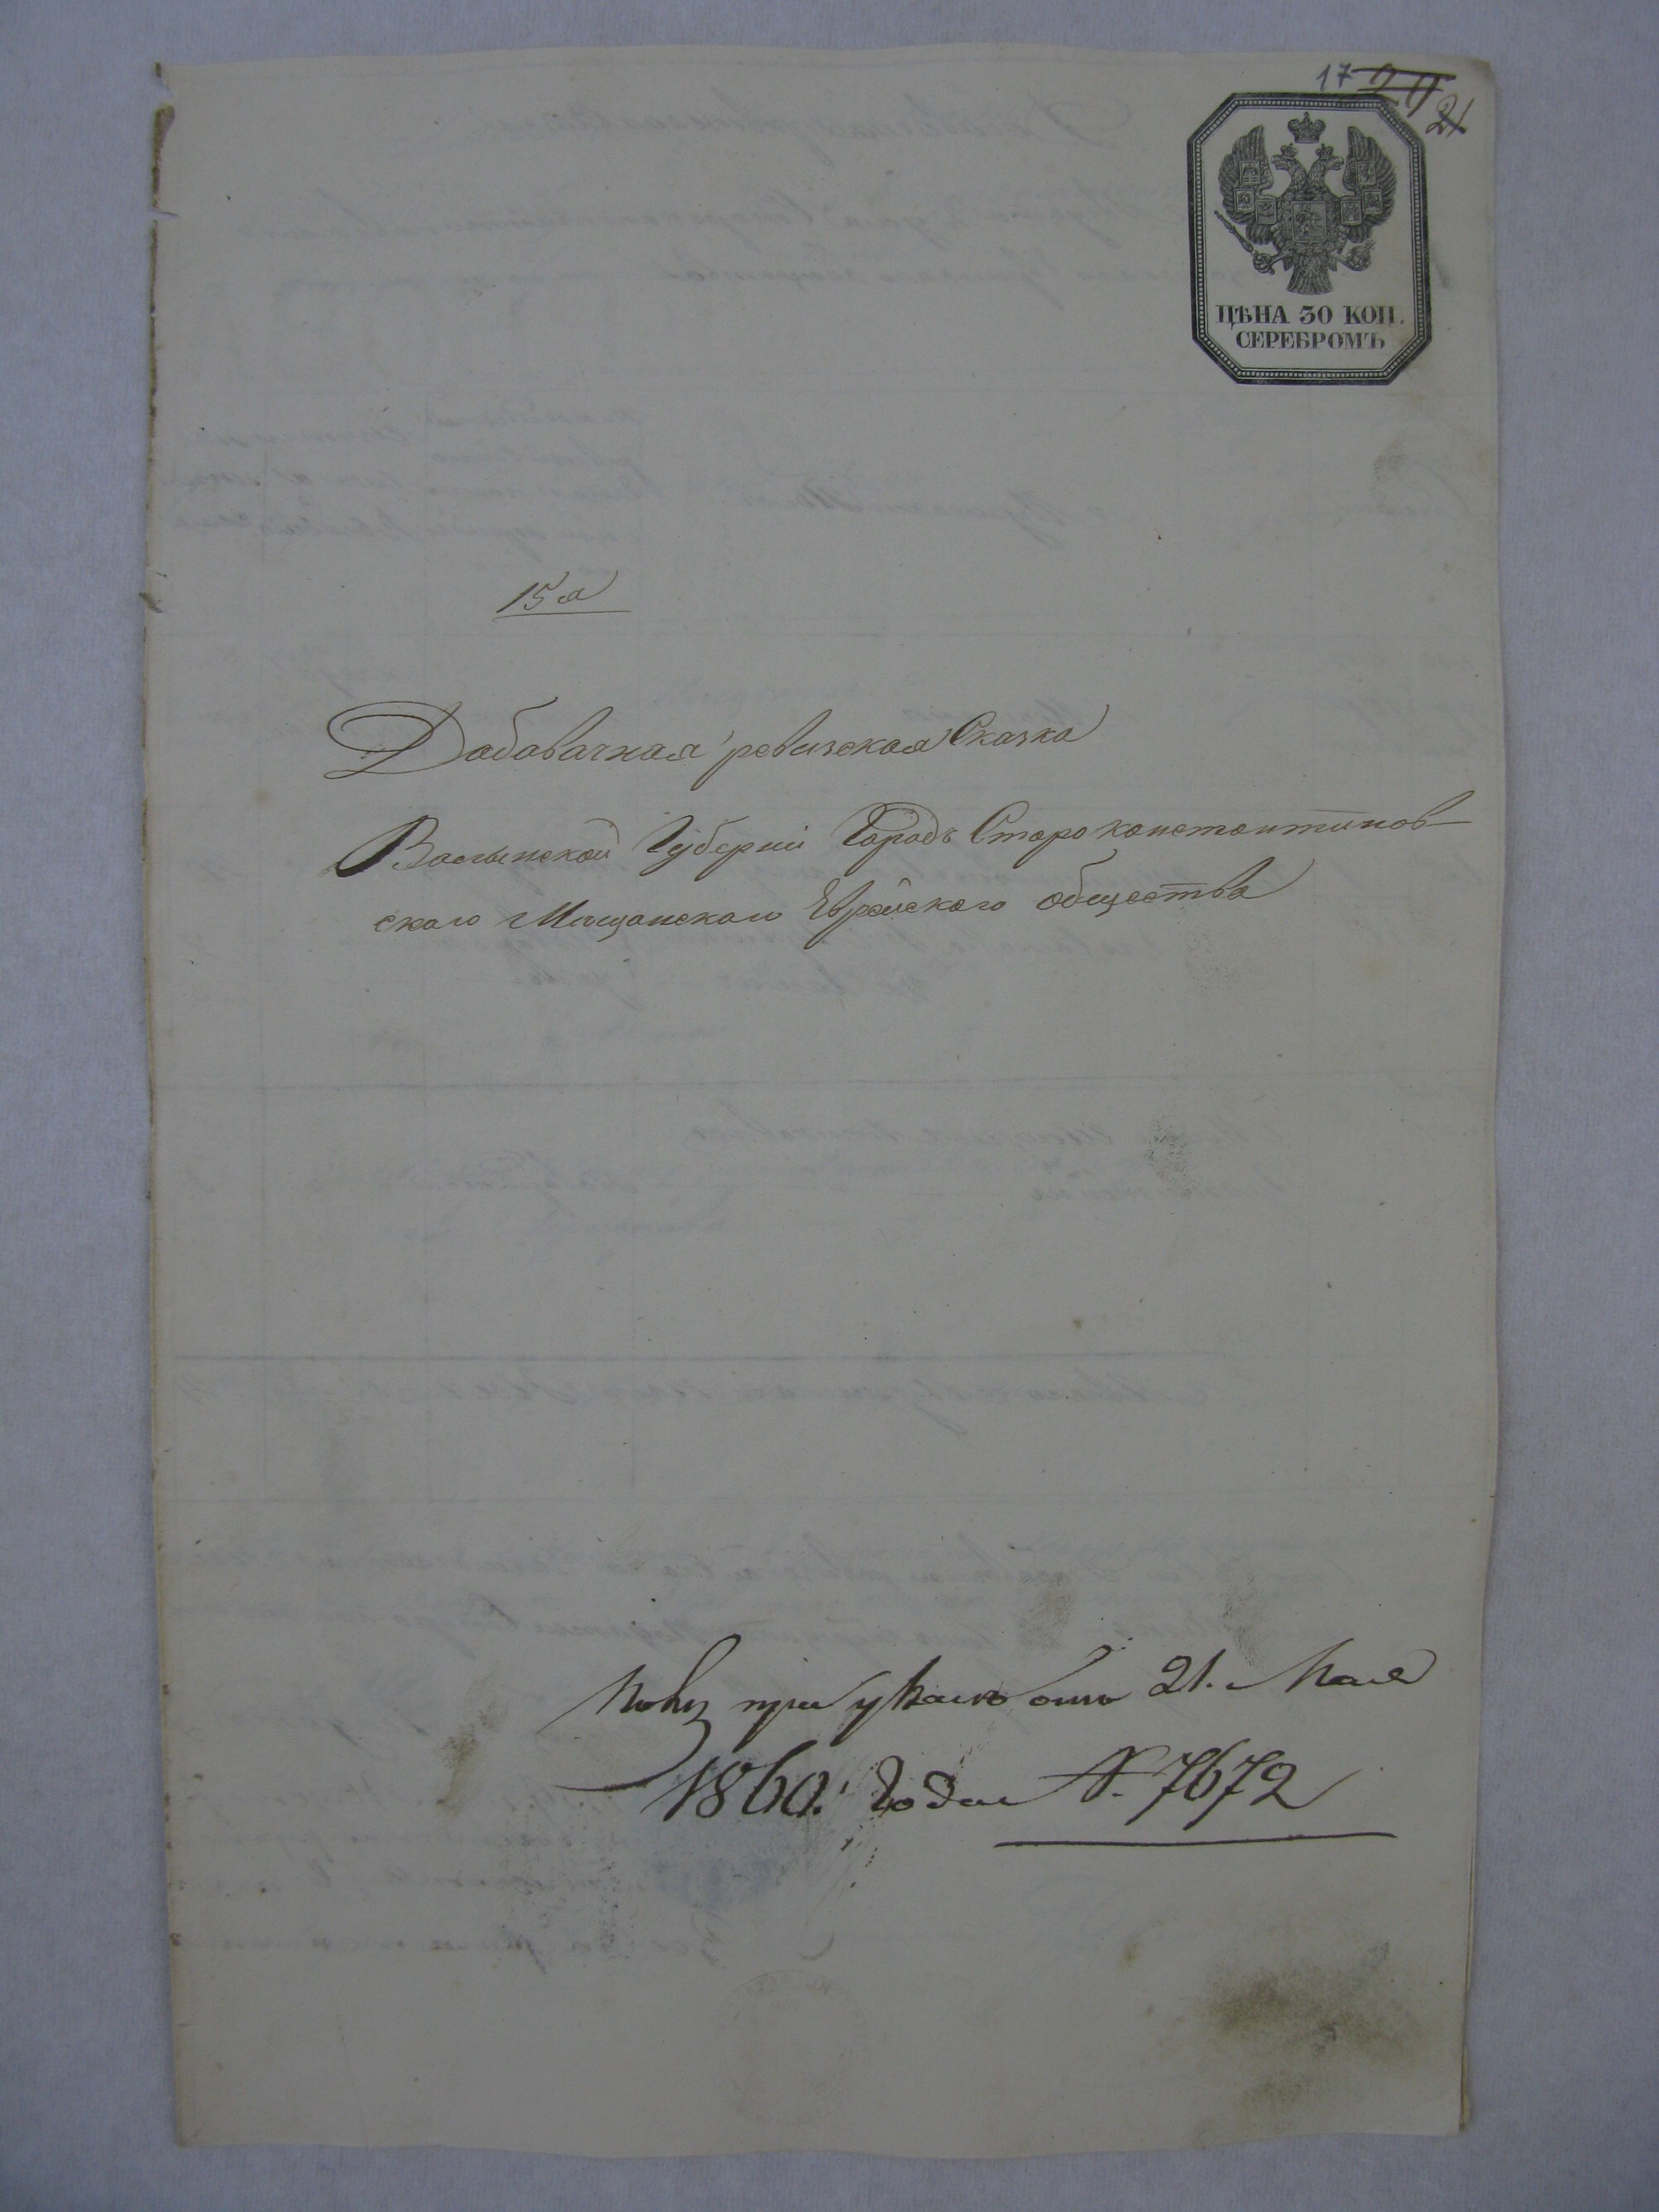 17 20 21
ЦѢНА 30 КОП.
СЕРЕБРОМЪ
15я
Добавачная ревизская Сказка
Волынской Губерніи Городъ Староконстантинов-
скаго Мѣщанскаго Еврейскаго общества
при указѣ отъ 21. Мая
1860. Года N. 7672